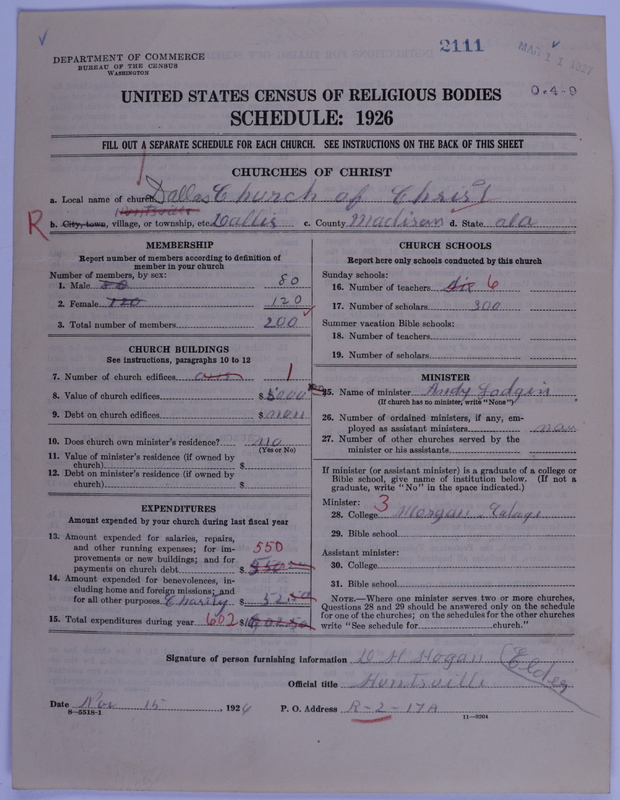 2111
MAR 11 1927
DEPARTMENT OF COMMERCE
BUREAU OF THE CENSUS
WASHINGTON
0-4-9
UNITED STATES CENSUS OF RELIGIOUS BODIES
SCHEDULE: 1926
FILL OUT A SEPARATE SCHEDULE FOR EACH CHURCH. SEE INSTRUCTIONS ON THE BACK OF THIS SHEET
CHURCHES OF CHRIST
a. Local name of church Dallas Church of Christ
Huntsville
R b. City, town, village, or township, etc. Dallis c. County Madison d. State ala
MEMBERSHIP
Report number of members according to definition of
member in your church
Number of members, by sex:
1. Male 80 80
2. Female 120 120
3. Total number of members 200
CHURCH BUILDINGS
See instructions, paragraphs 10 to 12
7. Number of church edifices 1
8. Value of church edifices $5000
9. Debt on church edifices $ none
10. Does church own minister's residence? no
(Yes or No)
11. Value of minister's residence (if owned by
church) $
12. Debt on minister's residence (if owned by
church) $
EXPENDITURES
Amount expended by your church during last fiscal year
13. Amount expended for salaries, repairs,
and other running expenses; for im-
provements or new buildings; and for 550
payments on church debt $ 550
14. Amount expended for benevolences, in-
cluding home and foreign missions; and
for all other purposes Charity $ 52.50
15. Total expenditures during year 602 $ 602.50
CHURCH SCHOOLS
Report here only schools conducted by this church
Sunday schools:
16. Number of teachers six 6
17. Number of scholars 300
Summer vacation Bible schools:
18. Number of teachers
19. Number of scholars
MINISTER
25. Name of minister Andy
(If church has no minister, write "None")
26. Number of ordained ministers, if any, em-
ployed as assistant ministers
27. Number of other churches served by the
minister or his assistants
If minister (or assistant minister) is a graduate of a college or
Bible school, give name of institution below. (If not a
graduate, write "No" in the space indicated.)
Minister: 3
28. College Morgan
29. Bible school
Assistant minister:
30. College
31. Bible school
NOTE.—Where one minister serves two or more churches,
Questions 28 and 29 should be answered only on the schedule
for one of the churches; on the schedules for the other churches
write "See schedule for church."
Signature of person furnishing information D H Hogan (Elder
Official title Huntsville
Date Nov 15, 1926 P. O. Address R-2-17A
8—5518-1 11—9204